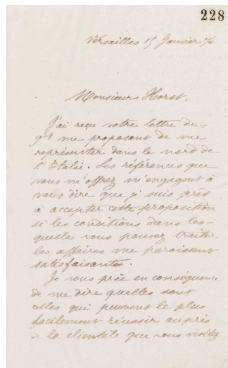 228
Versailles 15 Janvier 76
Monsieur Horst,
J'ai reçu votre lettre du
9 me proposant de me
représenter dans le nord de
l'Italie. Les références que
vous m'offrez m'engagent à
vous dire que je suis prêt
à accepter cette proposition
si les conditions dans les-
quelles vous pouvez traiter
les affaires me paraissent
satisfaisantes.
Je vous prie en conséquence
de me dire quelles sont
celles qui peuvent le plus
facilement réussir auprès
de la clientèle que vous visitez